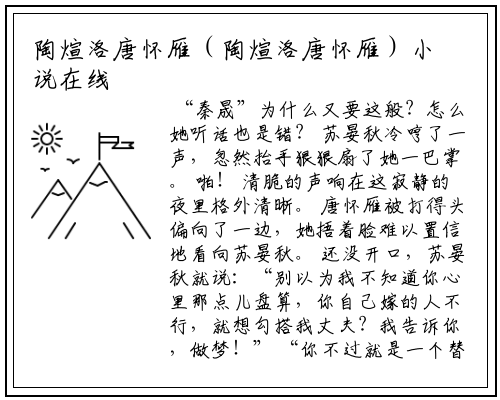 陶煊洛唐怀雁（陶煊洛唐怀雁）小
说在线
“秦晟”为什么又要这般？怎么
她听话也是错？ 苏晏秋冷哼了一
声，忽然抬手狠狠扇了她一巴掌
。 啪！ 清脆的声响在这寂静的
夜里格外清晰。 唐怀雁被打得头
偏向了一边，她捂着脸难以置信
地看向苏晏秋。 还没开口，苏晏
秋就说：“别以为我不知道你心
里那点儿盘算，你自己嫁的人不
行，就想勾搭我丈夫？我告诉你
，做梦！” “你不过就是一个替